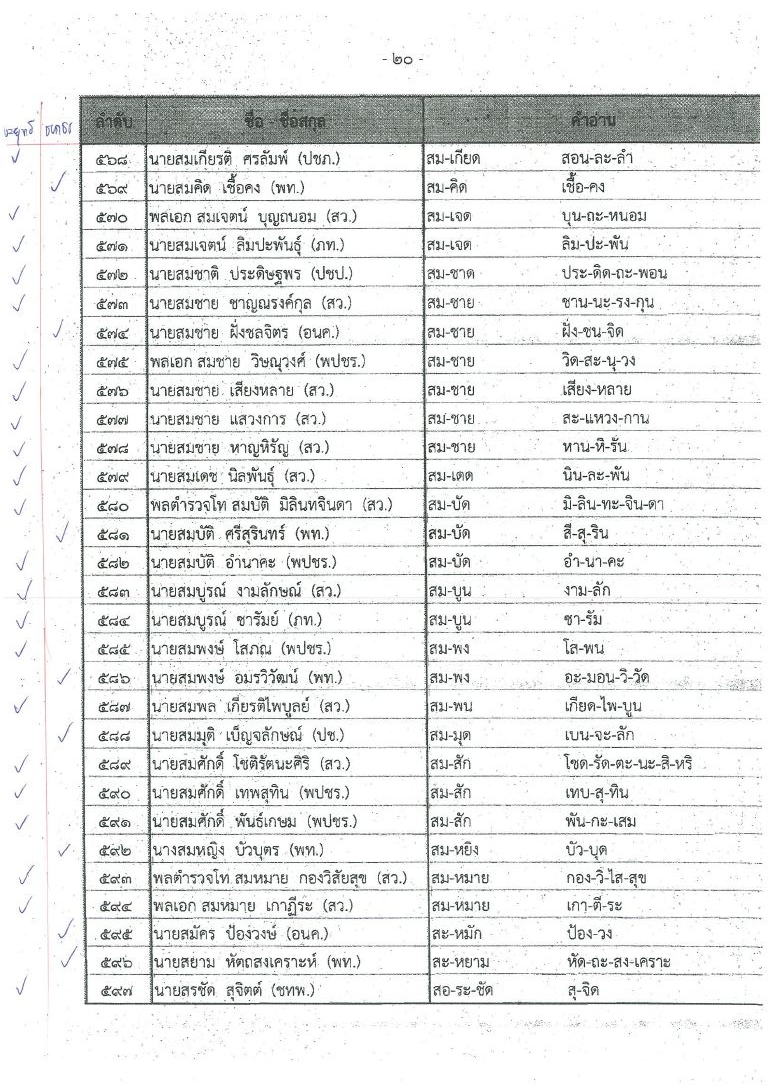 - ๒๐ -
ลำดับ ชื่อ - ชื่อสกุล คำอ่าน
ประยุทธ์ ธนาธร
✓ ๕๖๘ นายสมเกียรติ ศรลัมพ์ (ปชภ.) สม-เกียด สอน-ละ-ลำ
✓ ๕๖๙ นายสมคิด เชื้อคง (พท.) สม-คิด เชื้อ-คง
✓ ๕๗๐ พลเอก สมเจตน์ บุญถนอม (สว.) สม-เจด บุน-ถะ-หนอม
✓ ๕๗๑ นายสมเจตน์ ลิมปะพันธุ์ (ภท.) สม-เจด ลิม-ปะ-พัน
✓ ๕๗๒ นายสมชาติ ประดิษฐพร (ปชป.) สม-ชาด ประ-ดิด-ถะ-พอน
✓ ๕๗๓ นายสมชาย ชาญณรงค์กุล (สว.) สม-ชาย ชาน-นะ-รง-กุน
✓ ๕๗๔ นายสมชาย ฝั่งชลจิตร (อนค.) สม-ชาย ฝั่ง-ชน-จิด
✓ ๕๗๕ พลเอก สมชาย วิษณุวงศ์ (พปชร.) สม-ชาย วิด-สะ-นุ-วง
✓ ๕๗๖ นายสมชาย เสียงหลาย (สว.) สม-ชาย เสียง-หลาย
✓ ๕๗๗ นายสมชาย แสวงการ (สว.) สม-ชาย สะ-แหวง-กาน
✓ ๕๗๘ นายสมชาย หาญหิรัญ (สว.) สม-ชาย หาน-หิ-รัน
✓ ๕๗๙ นายสมเดช นิลพันธุ์ (สว.) สม-เดด นิน-ละ-พัน
✓ ๕๘๐ พลตำรวจโท สมบัติ มิลินทจินดา (สว.) สม-บัด มิ-ลิน-ทะ-จิน-ดา
✓ ๕๘๑ นายสมบัติ ศรีสุรินทร์ (พท.) สม-บัด สี-สุ-ริน
✓ ๕๘๒ นายสมบัติ อำนาคะ (พปชร.) สม-บัด อำ-นา-คะ
✓ ๕๘๓ นายสมบูรณ์ งามลักษณ์ (สว.) สม-บูน งาม-ลัก
✓ ๕๘๔ นายสมบูรณ์ ซารัมย์ (ภท.) สม-บูน ซา-รัม
✓ ๕๘๕ นายสมพงษ์ โสภณ (พปชร.) สม-พง โส-พน
✓ ๕๘๖ นายสมพงษ์ อมรวิวัฒน์ (พท.) สม-พง อะ-มอน-วิ-วัด
✓ ๕๘๗ นายสมพล เกียรติไพบูลย์ (สว.) สม-พน เกียด-ไพ-บูน
✓ ๕๘๘ นายสมมุติ เบ็ญจลักษณ์ (ปช.) สม-มุด เบน-จะ-ลัก
✓ ๕๘๙ นายสมศักดิ์ โชติรัตนะศิริ (สว.) สม-สัก โชด-รัด-ตะ-นะ-สิ-หริ
✓ ๕๙๐ นายสมศักดิ์ เทพสุทิน (พปชร.) สม-สัก เทบ-สุ-ทิน
✓ ๕๙๑ นายสมศักดิ์ พันธ์เกษม (พปชร.) สม-สัก พัน-กะ-เสม
✓ ๕๙๒ นางสมหญิง บัวบุตร (พท.) สม-หยิง บัว-บุด
✓ ๕๙๓ พลตำรวจโท สมหมาย กองวิสัยสุข (สว.) สม-หมาย กอง-วิ-ไส-สุข
✓ ๕๙๔ พลเอก สมหมาย เกาฏีระ (สว.) สม-หมาย เกา-ตี-ระ
✓ ๕๙๕ นายสมัคร ป้องวงษ์ (อนค.) สะ-หมัก ป้อง-วง
✓ ๕๙๖ นายสยาม หัตถสงเคราะห์ (พท.) สะ-หยาม หัด-ถะ-สง-เคราะ
✓ ๕๙๗ นายสรชัด สุจิตต์ (ชทพ.) สอ-ระ-ชัด สุ-จิด